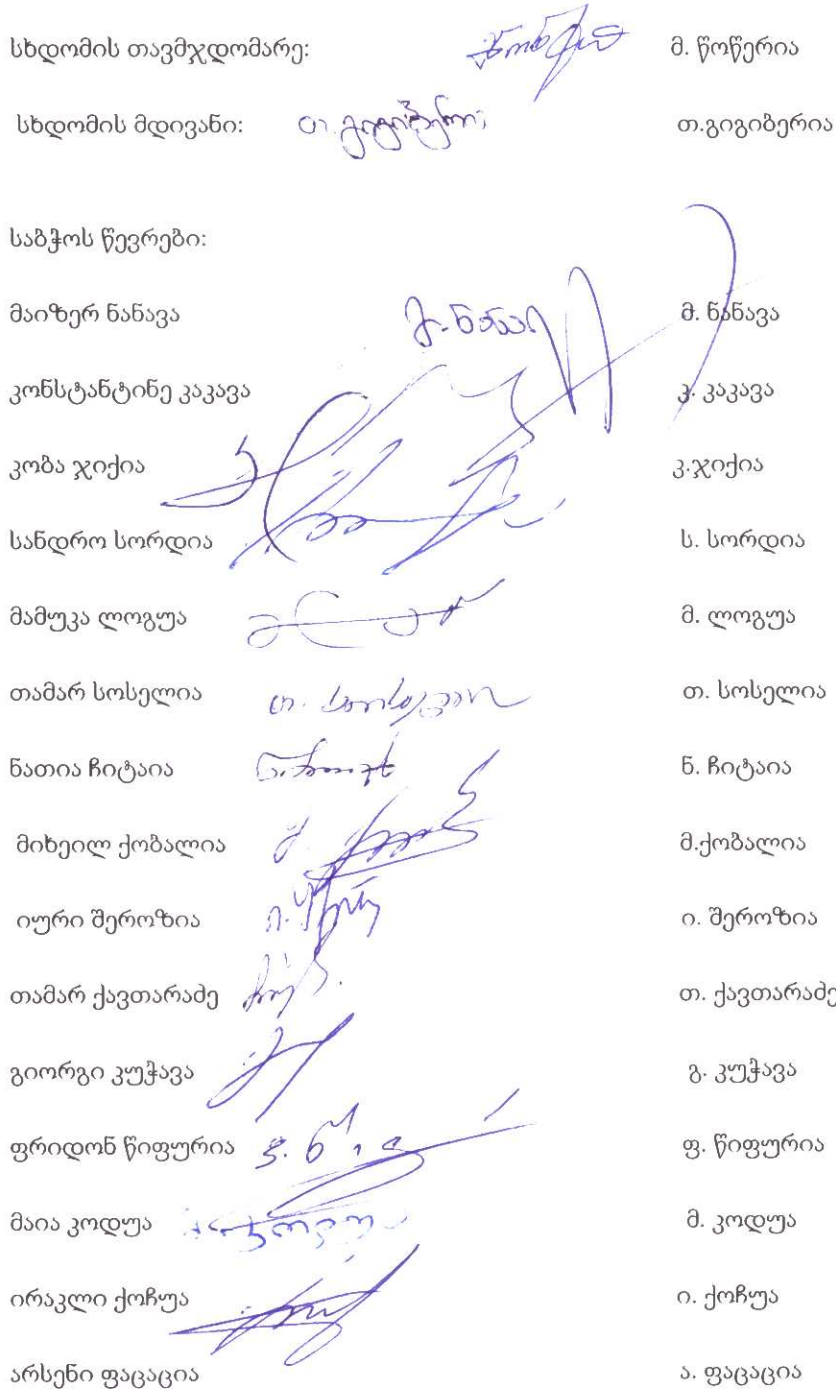 სხდომის თავმჯდომარე: მ. წოწერია
სხდომის მდივანი: თ. გიგიბერია თ.გიგიბერია
საბჭოს წევრები:
მაიზერ ნანავა მ. ნანავა
კონსტანტინე კაკავა კ. კაკავა
კობა ჯიქია კ.ჯიქია
სანდრო სორდია ს. სორდია
მამუკა ლოგუა მ. ლოგუა
თამარ სოსელია თ. სოსელია
ნათია ჩიტაია ნ. ჩიტაია
მიხეილ ქობალია მ.ქობალია
იური შეროზია ი. შეროზია
თამარ ქავთარაძე თ. ქავთარაძე
გიორგი კუჭავა გ. კუჭავა
ფრიდონ წიფურია ფ. წიფურია
მაია კოდუა მ. კოდუა
ირაკლი ქოჩუა ი. ქოჩუა
არსენი ფაცაცია ა. ფაცაცია